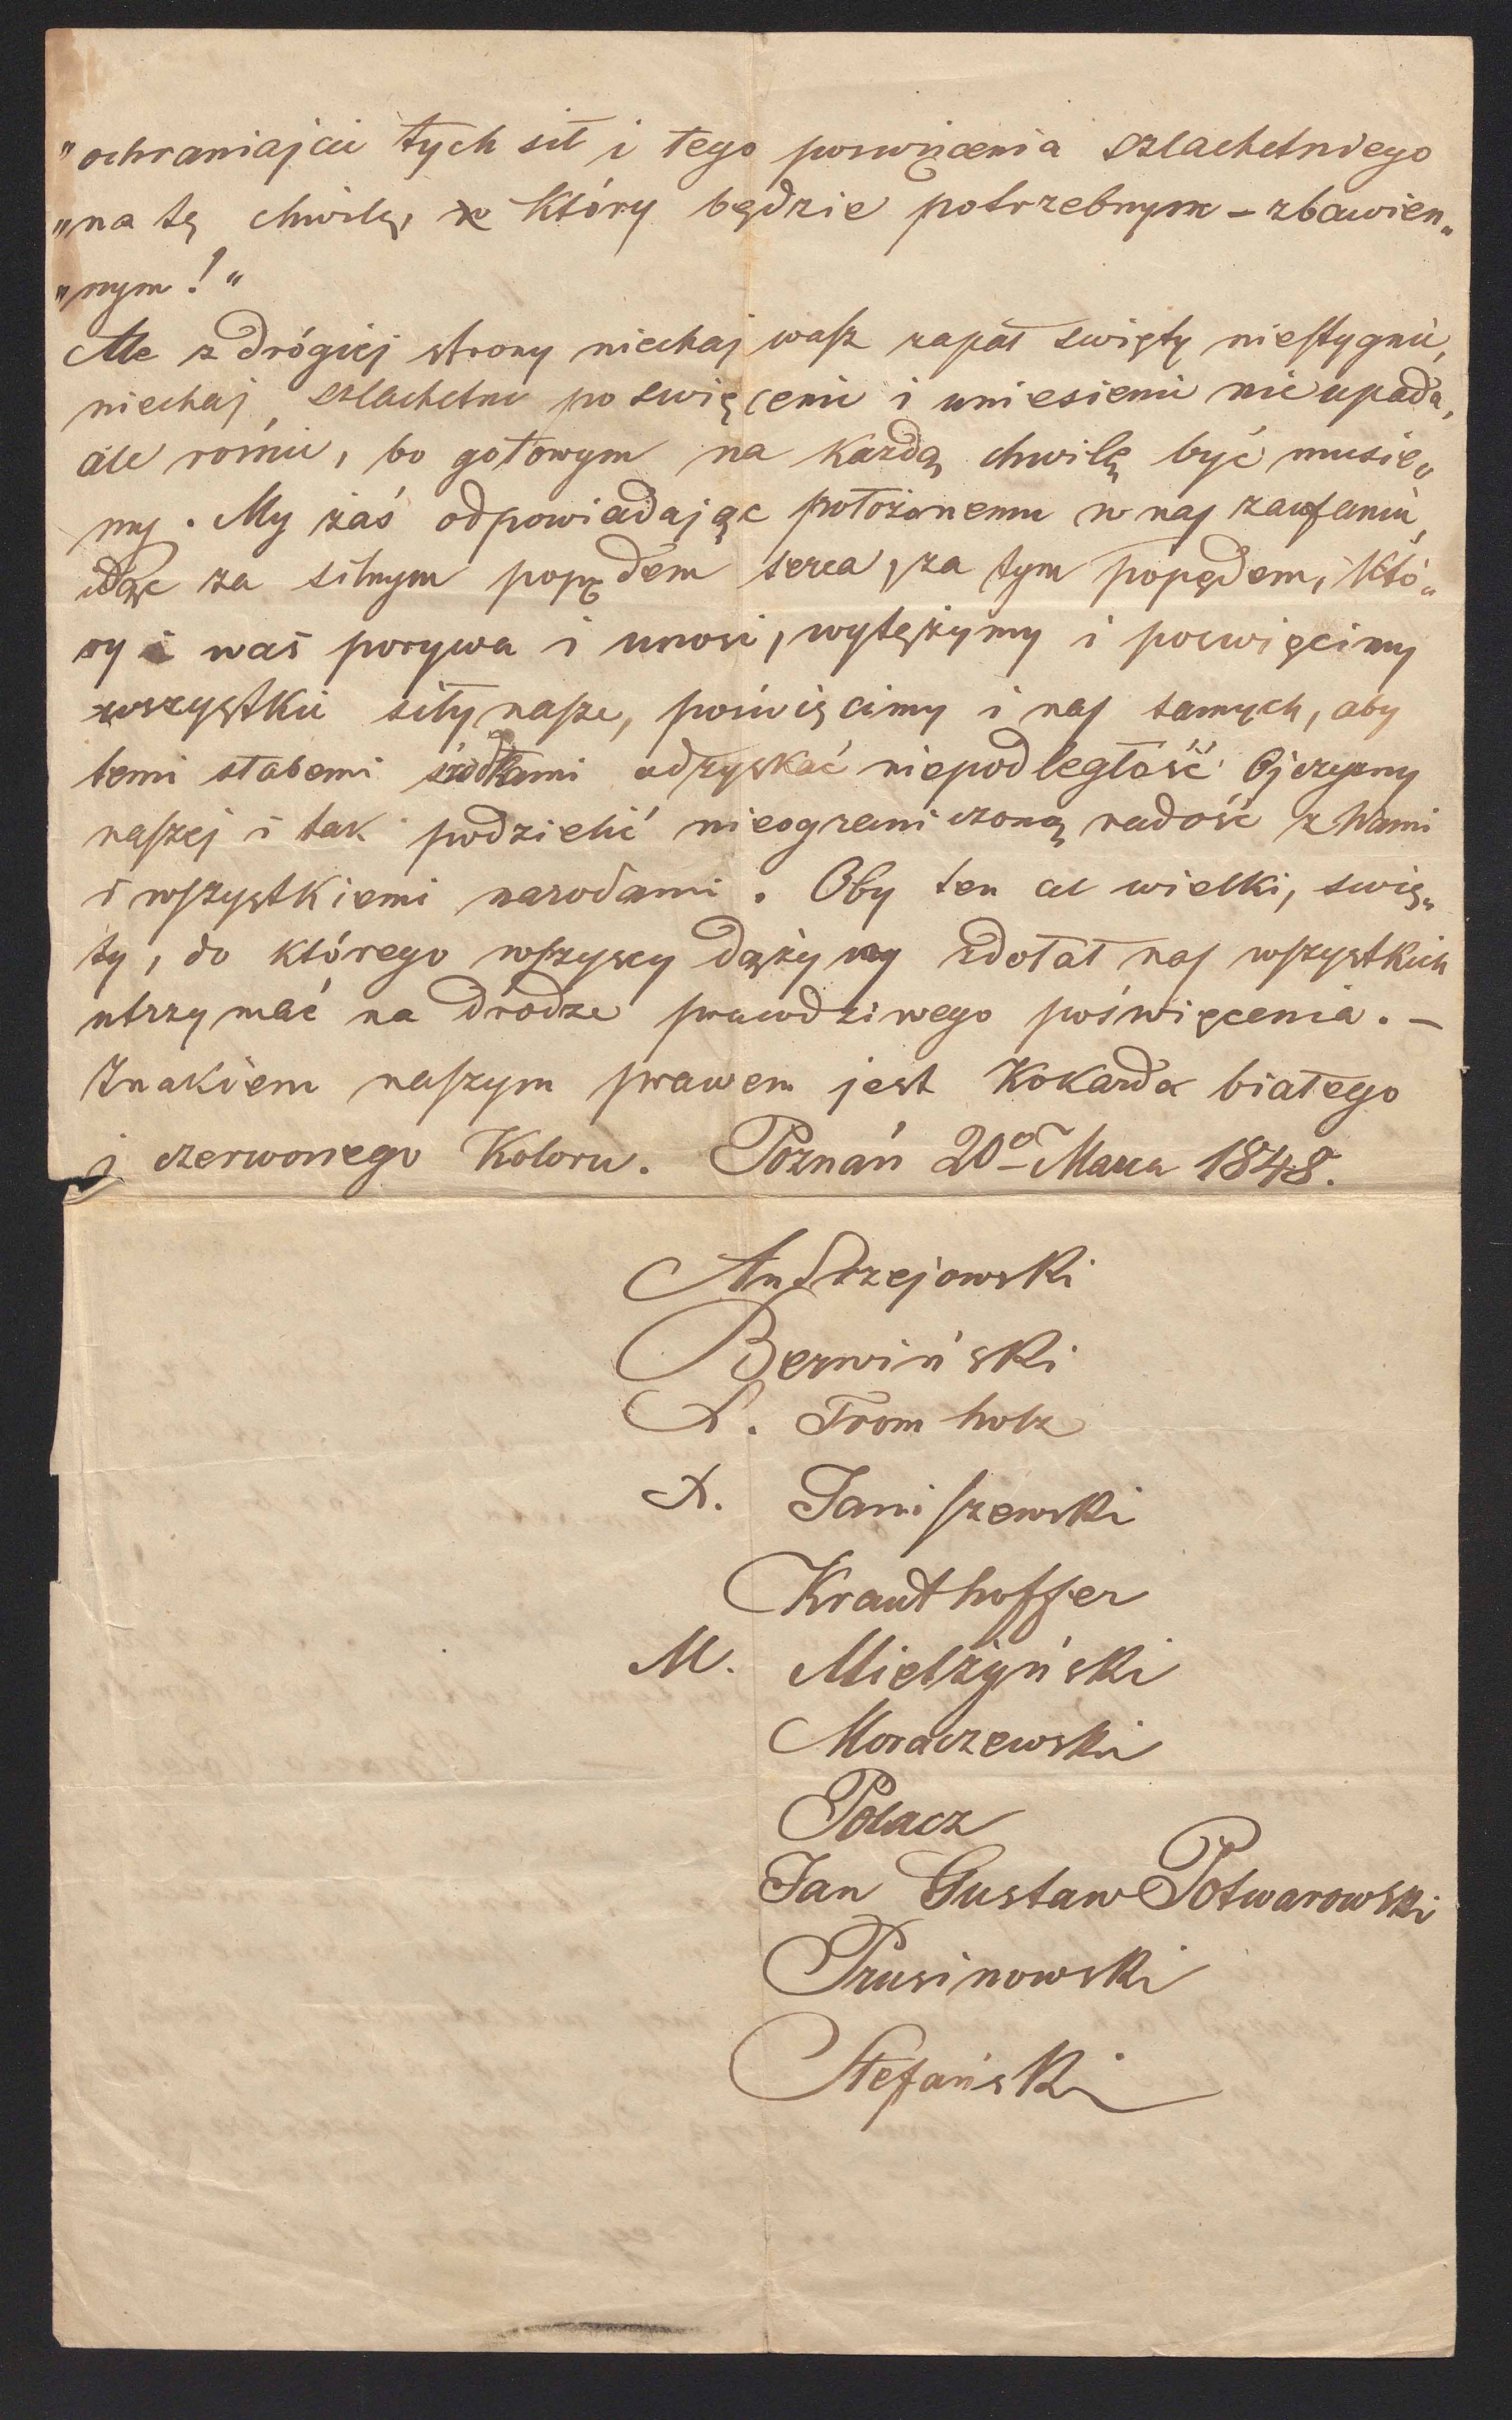 "ochraniajcie tych sił i tego poswięcenia szlachetniego
"na tę chwilę, w który będzie potrzebnym – zbawien„
"nym!"
Ale z drógiej strony niechaj wasz zapał swięty niestygnie,
niechaj szlachetne poswięcenie i uniesienie nie upada,
ale rośnie, bo gotowym na każdą chwilę być musie„
my. My zaś odpowiadając położonemu w nas zaufaniu,
idąc za silnym popędem serca, za tym popędem, któ„
ry i was porywa i unosi, wytężymy i poswięcimy
wszystkie siły nasze, poświęcimy i nas samych, aby
temi słabemi środkami odzyskać niepodległość Ojczyzny
naszej i tak podzielić nieograniczoną radość z Wami
i wszystkiemi narodami. Oby ten cel wielki, swię„
ty, do którego wszyscy dążymy zdołał nas wszystkich
utrzymać na drodze prawdziwego poświęcenia. –
Znakiem naszym prawem jest Kokarda białego
i czerwonego Koloru. Poznań 20º Marca 1848.
Andrzejowski
Berwiński
X. Fromholz
X. Janiszewski
Krauthoffer
M. Mielżyński
Moraczewski
Polacz
Jan Gustaw Potwarowski
Prusinowski
Stefański